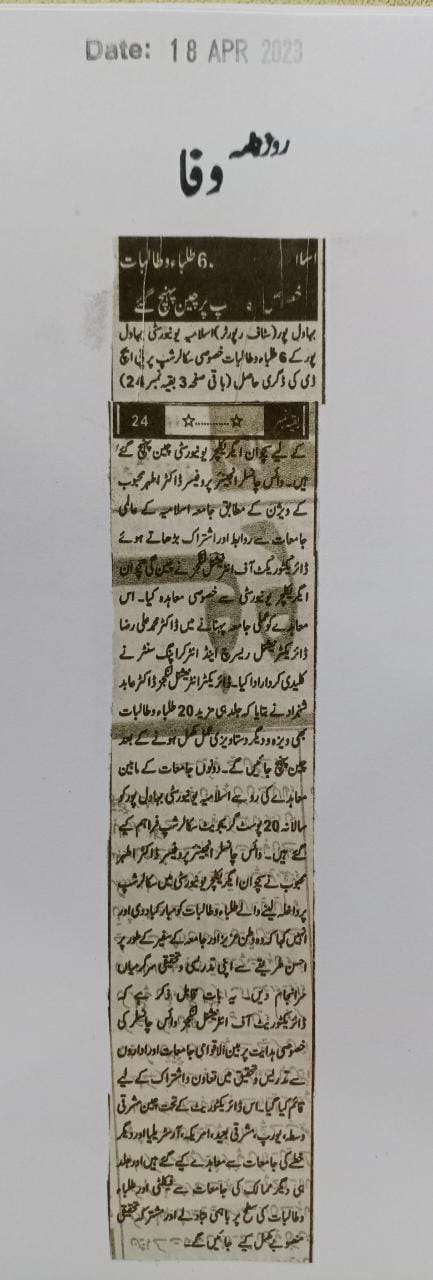 Date: 18 APR 2023
روزنامہ
وفا
6 طلباء و طالبات
پر چین پہنچ گئے
بہاول پور (سٹاف رپورٹر) اسلامیہ یونیورسٹی بہاول
پور کے 6 طلباء و طالبات خصوصی سکالرشپ پر پی ایچ
ڈی کی ڈگری حاصل (باقی صفحہ 3 بقیہ نمبر 24)
بقیہ نمبر ☆............☆ 24
کے لیے سچوان ایگریکلچر یونیورسٹی چین پہنچ گئے
ہیں۔ وائس چانسلر انجینئر پروفیسر ڈاکٹر اطہر محبوب
کے ویژن کے مطابق جامعہ اسلامیہ کے عالمی
جامعات سے روابط اور اشتراک بڑھاتے ہوئے
ڈائریکٹوریٹ آف انٹرنیشنل لنکجز نے چین کی سچوان
ایگریکلچر یونیورسٹی سے خصوصی معاہدہ کیا۔ اس
معاہدے کو عملی جامہ پہنانے میں ڈاکٹر محمد علی رضا
ڈائریکٹر نیشنل ریسرچ اینڈ انٹرکراپنگ سنٹر نے
کلیدی کردار ادا کیا۔ ڈائریکٹر انٹرنیشنل لنکجز ڈاکٹر عابد
شہزاد نے بتایا کہ جلد ہی مزید 20 طلباء و طالبات
بھی ویزہ و دیگر دستاویزی عمل مکمل ہونے کے بعد
چین پہنچ جائیں گے۔ دونوں جامعات کے مابین
معاہدے کی رو سے اسلامیہ یونیورسٹی بہاول پور کو
سالانہ 20 پوسٹ گریجویٹ سکالرشپ فراہم کیے
گئے ہیں۔ وائس چانسلر انجینئر پروفیسر ڈاکٹر اطہر
محبوب نے سچوان ایگریکلچر یونیورسٹی میں سکالرشپ
پر داخلہ لینے والے طلباء و طالبات کو مبارکباد دی اور
انہیں کہا کہ وہ وطن عزیز اور جامعہ کے سفیر کے طور پر
احسن طریقے سے اپنی تدریسی و تحقیقی سرگرمیاں
سرانجام دیں۔ یہ بات قابل ذکر ہے کہ
ڈائریکٹوریٹ آف انٹرنیشنل لنکجز وائس چانسلر کی
خصوصی ہدایت پر بین الاقوامی جامعات اور اداروں
سے تدریس و تحقیق میں تعاون و اشتراک کے لیے
قائم کیا گیا۔ اس ڈائریکٹوریٹ کے تحت چین مشرقی
وسطہ، یورپ، مشرقی بعید، امریکہ، آسٹریلیا اور دیگر
خطے کی جامعات سے معاہدے کیے گئے ہیں اور جلد
ہی دیگر ممالک کی جامعات سے فیکلٹی اور طلباء
و طالبات کی سطح پر باہمی تبادلے اور مشترکہ تحقیقی
منصوبے مکمل کیے جائیں گے۔